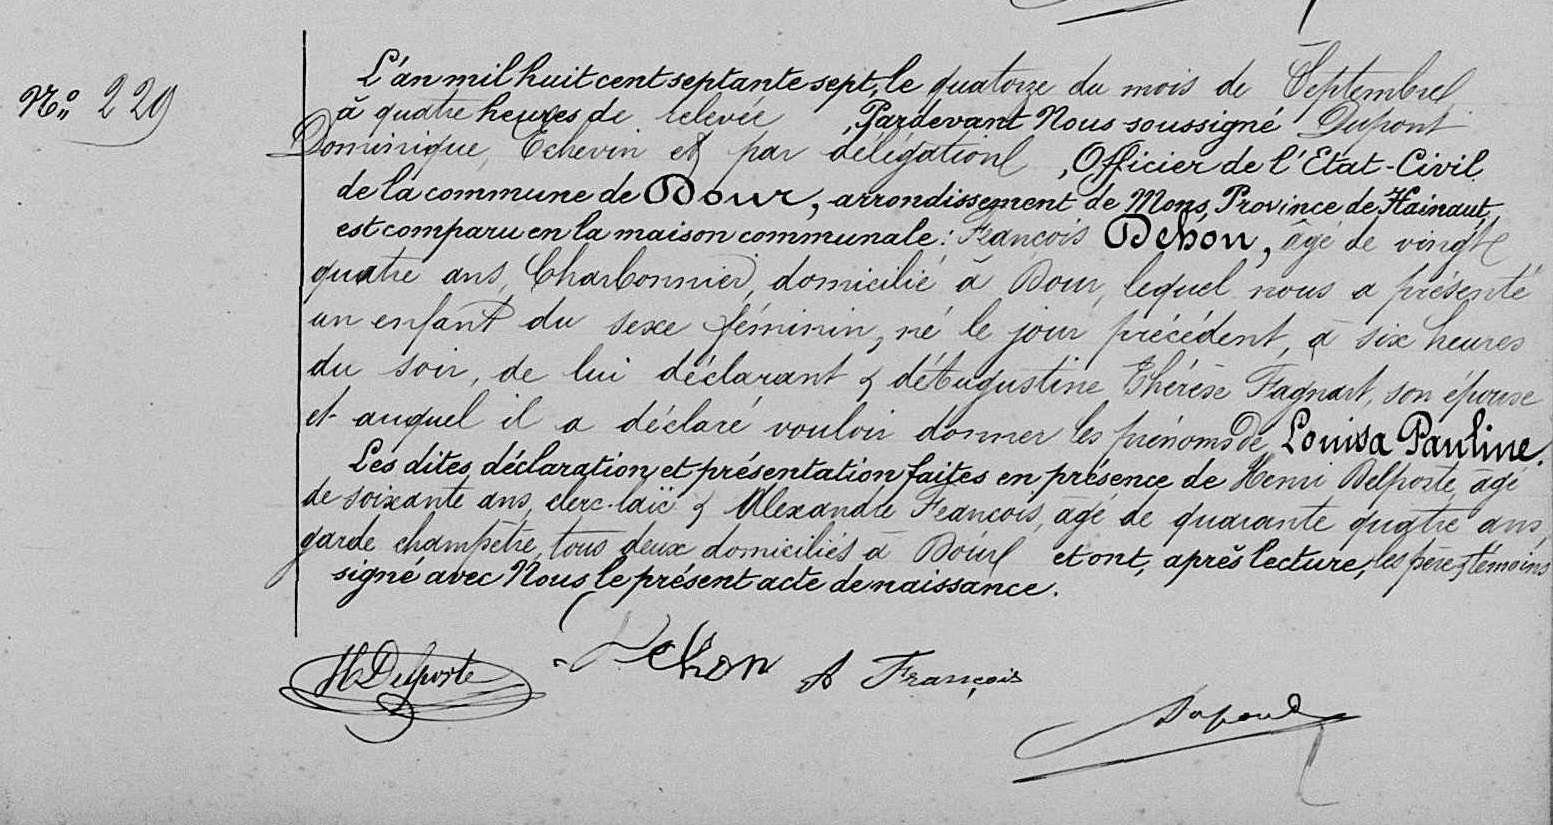 Nº 229
L'an mil huit cent septante sept, le quatorze du mois de Septembre
à quatre heures de relevée, Pardevant Nous soussigné Dupont
Dominique, Echevin et par délégation, Officier de l'Etat-Civil
de la commune de Dour, arrondissement de Mons, Province de Hainaut,
est comparu en la maison communale: François Dehon, âgé de vingt
quatre ans, Charbonnier, domicilié à Dour, lequel nous a présenté
un enfant du sexe féminin, né le jour précédent, à six heures
du soir, de lui déclarant & d'Augustine Thérèse Fagnart, son épouse
et auquel il a déclaré vouloir donner les prénoms de Louisa Pauline.
Les dites déclaration et présentation faites en présence de Henri Delporte, âgé
de soixante ans, clerc-laïc & Alexandre François, âgé de quarante quatre ans,
garde champêtre, tous deux domiciliés à Dour et ont, après lecture, les père & témoins
signé avec Nous le présent acte de naissance.
H Delporte Dehon A François
Dupont